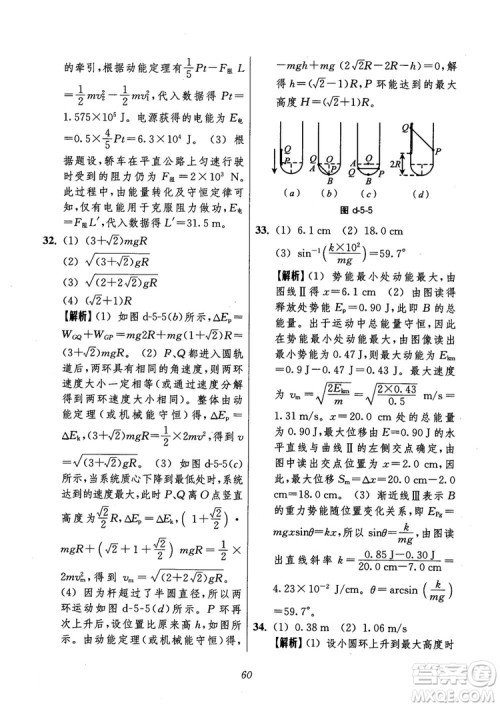 的牵引，根据动能定理有 1/5 Pt－F阻 L
＝1/2 mv₂²－1/2 mv₁²，代入数据得 Pt＝
1.575×10⁵ J。电源获得的电能为 E电
＝0.5×4/5 Pt＝6.3×10⁴ J。（3）根
据题设，轿车在平直公路上匀速行驶
时受到的阻力仍为 F阻＝2×10³ N。
此过程中，由能量转化及守恒定律可
知，仅有电能用于克服阻力做功 E电
＝F阻L′，代入数据得 L′＝31.5 m。
32. （1）(3＋√2)mgR
（2）√((3＋√2)gR)
（3）√((2＋2√2)gR)
（4）(√2＋1)R
【解析】（1）如图 d-5-5(a) 所示，ΔEp＝
WGQ＋WGP＝mg2R＋mg(1＋√2)R
＝(3＋√2)mgR。（2）P、Q 都进入圆轨
道后，两环具有相同的角速度，则两环
速度大小一定相等（或通过速度分解
得到两环速度大小相等）。整体由动
能定理（或机械能守恒）可得，ΔEp＝
ΔEk，即 (3＋√2)mgR＝1/2·2mv²，得 v
＝√((3＋√2)gR)。（3）如图 d-5-5(c) 所
示，当系统质心处于最低点时，系统达
到速度的最大值，此时 P、Q 离 O 点竖直
高度为 √2/2 R，所以 (√2/2＋1＋√2)
·mgR＋(√2/2＋1)mgR＝1/2·
2mvm²，得到 vm＝√((2＋2√2)gR)。
（4）因为杆超过了半圆直径，所以两
环运动如图 d-5-5(d) 所示。P 环再
次上升后，位置比原来高 h，由动能定
理，有动能定理（或机械能守恒）可得
－mgh＋mg(2√2R－2R－h)＝0，
解得 h＝(√2－1)R，P 环能达到的最大
高度 H＝(√2＋1)R。
R P
A Q P
A Q P
2R P
(a) (b) (c) (d)
图 d-5-5
33. （1）6.1 cm （2）18.0 cm
（3）sin⁻¹(k×10²/mg)＝59.7°
【解析】（1）势能最小处动能最大，由
图线Ⅱ得 x＝6.1 cm。（2）由图读得
释放处势能为 Ep＝0.90 J，此即 B 的
总能量。出于运动中总能量守恒，因此
在势能最小处动能最大，由图像得最小
势能为 0.47 J，则最大动能为 Ekm
＝0.9 J－0.47 J＝0.43 J。最大速度
为 vm＝√(2Ekm/m)＝√(2×0.43/0.5) m/s＝
1.31 m/s。x＝20.0 cm 处的总能量
为 0.90 J，最大位移由 E＝0.90 J 的水
平直线与曲线Ⅱ的左侧交点确定，由
图中读出交点位置为 x＝2.0 cm，因
此，最大位移 Sm＝20.0 cm－2.0 cm
＝18.0 cm。（3）渐近线Ⅲ表示 B
的重力势能随位置变化关系，即 EPg＝
mgxsinθ＝kx，得 sinθ＝k/mg，由图读
出直线斜率 k＝(0.85 J－0.30 J)/(20.0－7.0) cm＝
4.23×10⁻² J/cm。θ＝arcsin(k/mg)
＝59.7°。
34. （1）0.38 m （2）1.06 m/s
【解析】（1）设小圆环上升到最大高度时
60